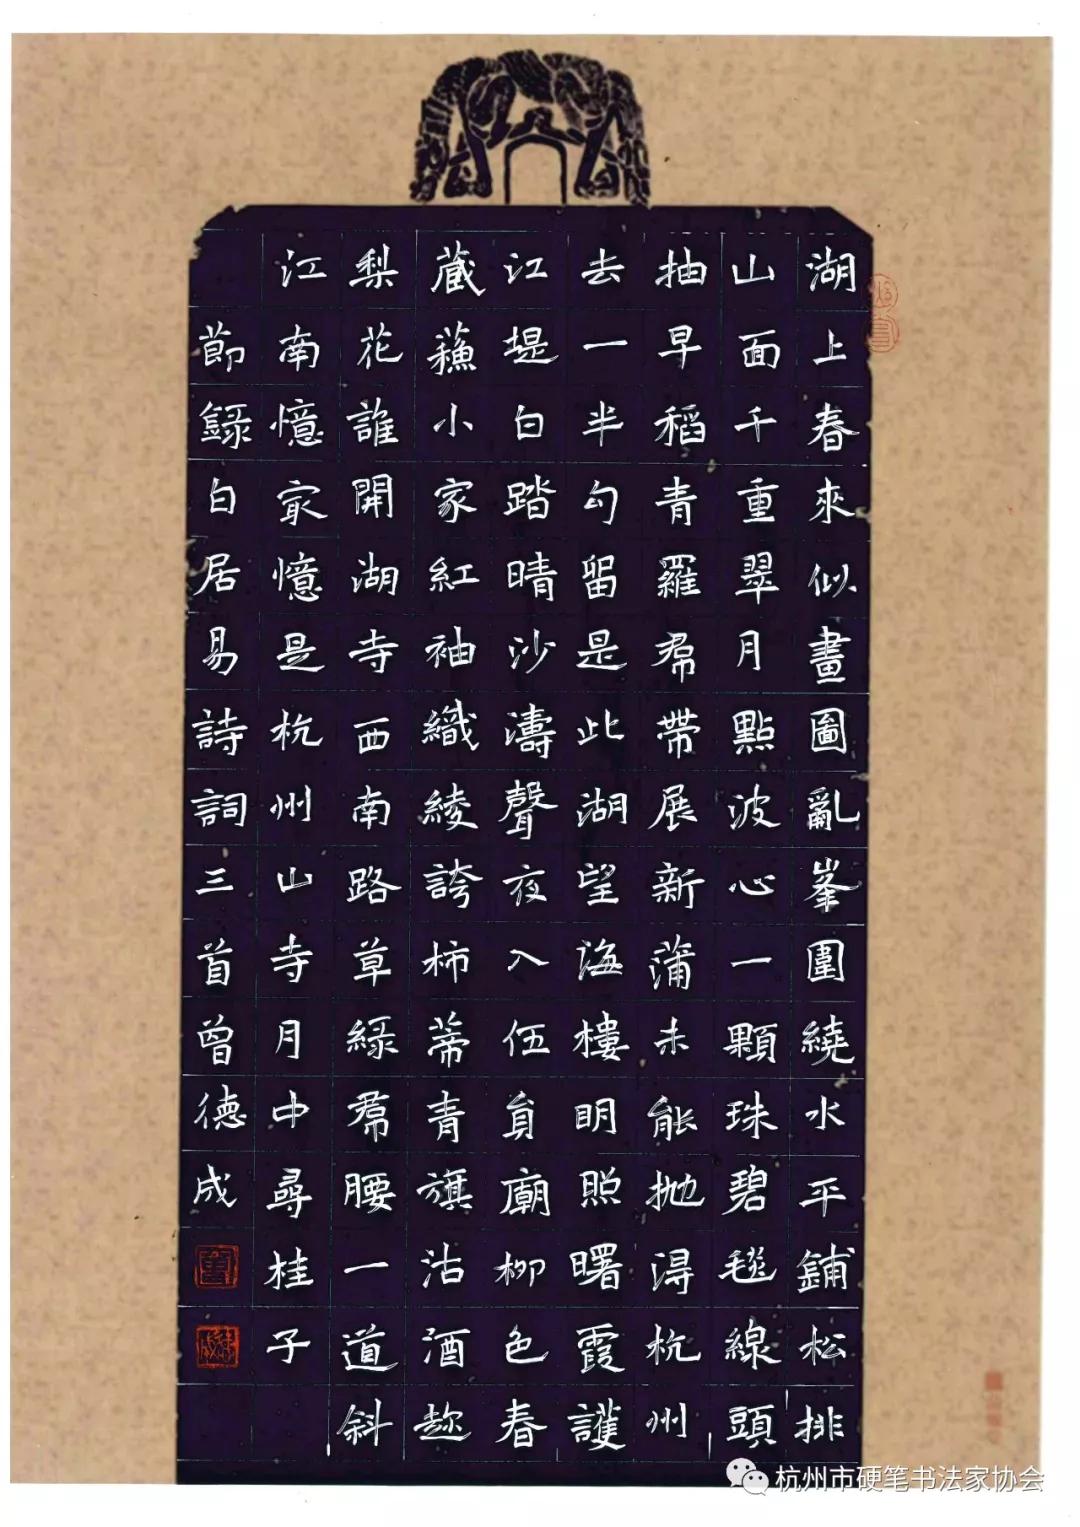 湖上春來似畫圖亂峯圍繞水平鋪松排
山面千重翠月點波心一顆珠碧毯線頭
抽早稻青羅帬帶展新蒲未能抛得杭州
去一半勾留是此湖望海樓明照曙霞護
江堤白踏晴沙濤聲夜入伍員廟柳色春
藏蘓小家紅袖織綾誇柿蒂青旗沽酒趂
梨花誰開湖寺西南路草綠帬腰一道斜
江南憶冣憶是杭州山寺月中尋桂子
節錄白居易詩詞三首曾德成
杭州市硬笔书法家协会